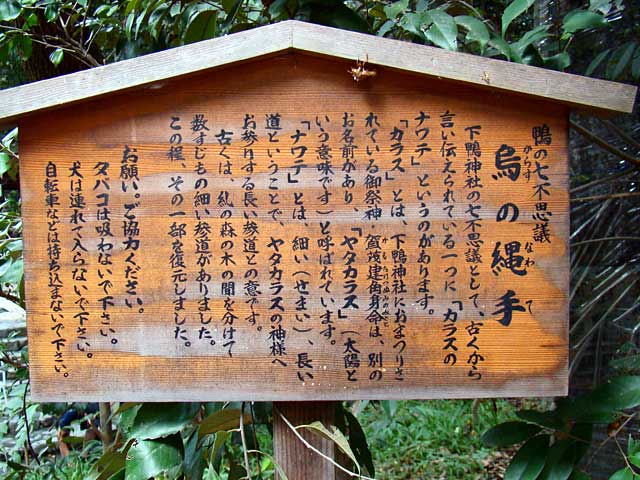 鴨の七不思議
烏の縄手
からす
なわ
て
下鴨神社の七不思議として、古くから
言い伝えられている一つに「カラスの
ナワテ」というのがあります。
「カラス」とは、下鴨神社におまつりさ
れている御祭神・賀茂建角身命は、別の
かもたけつぬみのみこと
お名前があり、「ヤタカラス」（太陽と
いう意味です）と呼ばれています。
「ナワテ」とは、細い（せまい）、長い
道ということで、ヤタカラスの神様へ
お参りする長い参道との意です。
古くは、糺の森の木の間を分けて
数すじもの細い参道がありました。
この程、その一部を復元しました。
お願い。ご協力ください。
タバコは吸わないで下さい。
犬は連れて入らないで下さい。
自転車などは持ち込まないで下さい。